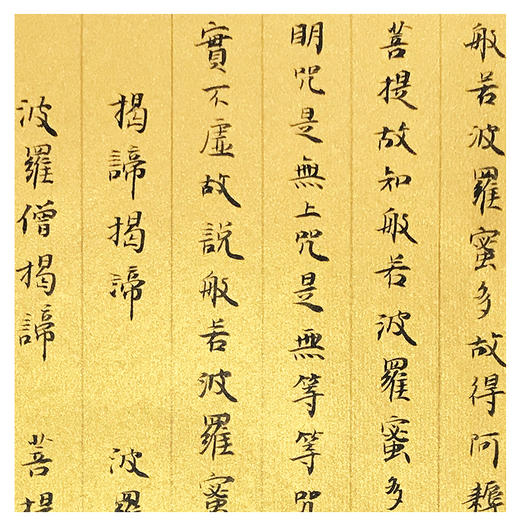 般若波羅蜜多故得阿耨
菩提故知般若波羅蜜多
明咒是無上咒是無等等咒
實不虛故說般若波羅蜜
揭諦揭諦 波羅
波羅僧揭諦 菩提